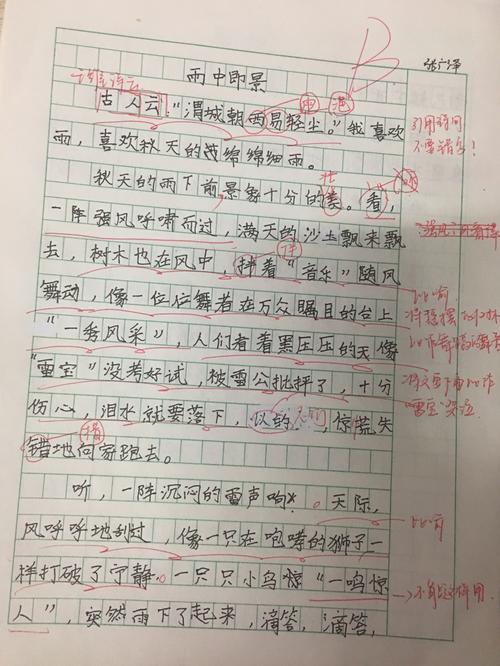 张广泽
雨中即景
古人云："渭城朝西易轻尘。"我喜欢
雨 浥
引用诗词
不要错字！
雨，喜欢秋天的绵绵细雨。
秋天的雨下前景象十分的美。看，
壮
一阵强风呼啸而过，满天的沙土飘来飘
去，树木也在风中，拌着"音乐"随风
伴
舞动，像一位位舞者在万众瞩目的台上
比喻
"一秀风采"，人们看着黑压压的天像
"雷宝"没考好试，被雷公批评了，十分
伤心，泪水就要落下，似的，惊慌失
"雷宝"哭泣
错地向家跑去。
措
听，一阵沉闷的雷声响。天际，
风呼呼地刮过，像一只在咆哮的狮子一
比喻
样打破了宁静。一只只小鸟惊"一鸣惊
人"，突然雨下了起来，滴答，滴答，